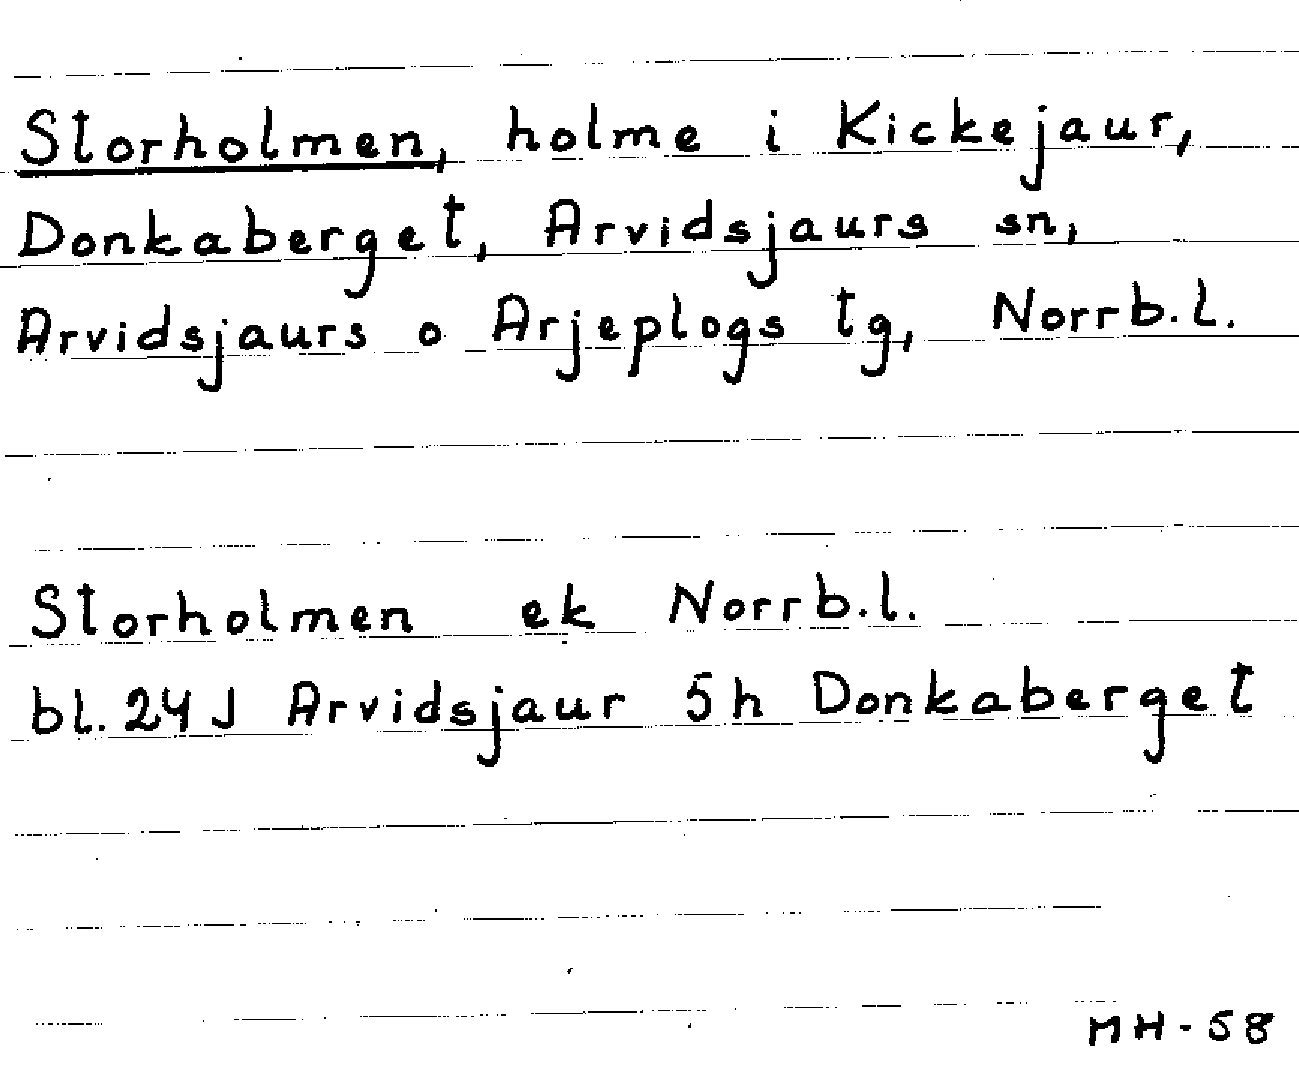 Storholmen, holme i Kickejaur,
Donkaberget, Arvidsjaurs sn,
Arvidsjaurs o Arjeplogs tg, Norrb.l.
Storholmen ek Norrb.l.
bl. 24 J Arvidsjaur 5h Donkaberget
MH-58